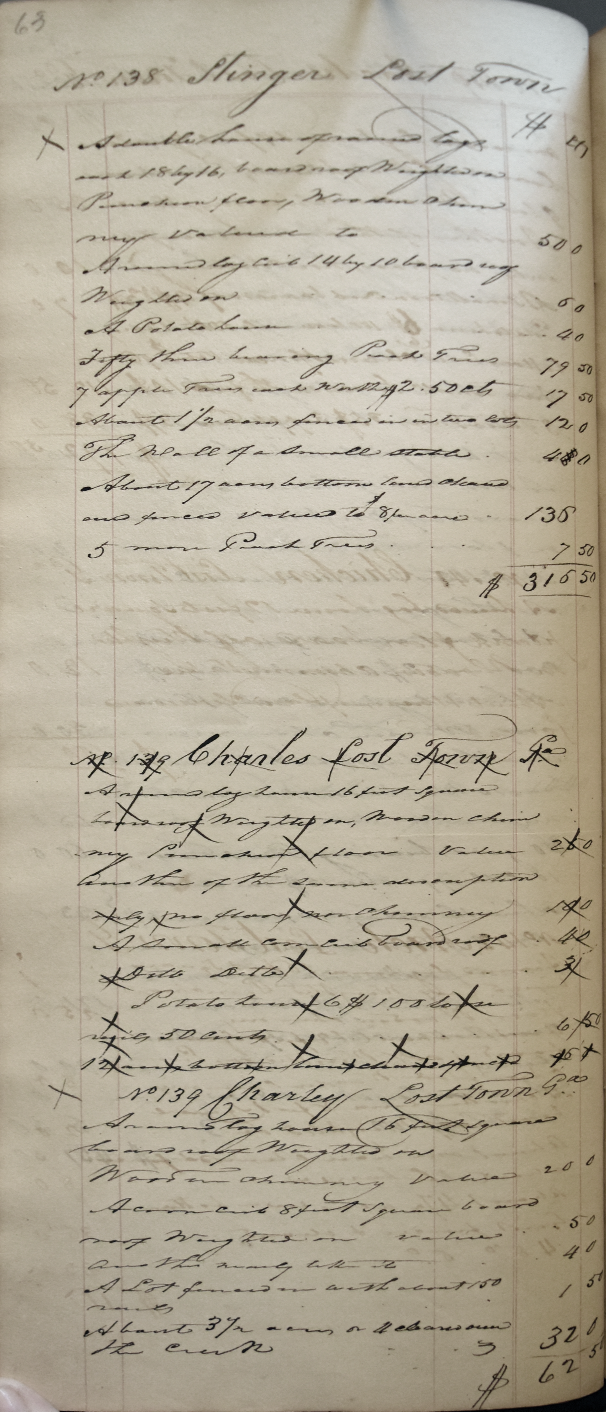 63
No. 138 Stinger Lost Town
$ cts
X A double house of round logs
each 18 by 16, board roof Weighted on
Puncheon floor, Wooden Chim
ney Valued to 50 0
A round log Crib 14 by 10 board roof
Weighted on 6 0
A Potato house 4 0
Fifty three bearing Peach Trees 79 50
7 apple Trees each Worth $2.50 cts 17 50
About 1 1/2 acres fenced in in two lots 12 0
The Wall of a Small stable 4 0
About 17 acres bottom land cleared
and fenced Valued to $8 per acre 136
5 more Peach Trees 7 50
$ 316 50
No. 139 Charles Lost Town Ga
A round log house 16 feet Square
board roof Weighted on, Wooden Chim
ney Puncheon floor Value 0
Another of the same description
only no floor, nor Chimney 0
A Small Corn Crib board roof 4 0
Ditto Ditto 3
Potato house 6 $ 100
rails 50 Cents 6 50
12 acres bottom land cleared & fenced
X No. 139 Charley Lost Town Ga
A round log house 16 feet Square
board roof Weighted on
Wooden Chimney Value 20 0
A corn crib 8 feet Square board
roof Weighted on Value 5 0
Another nearly like it 4 0
A Lot fenced in with about 150 1 50
rails
About 3 1/2 acres or 4 cleared on
the Creek 32 0
$ 62 5